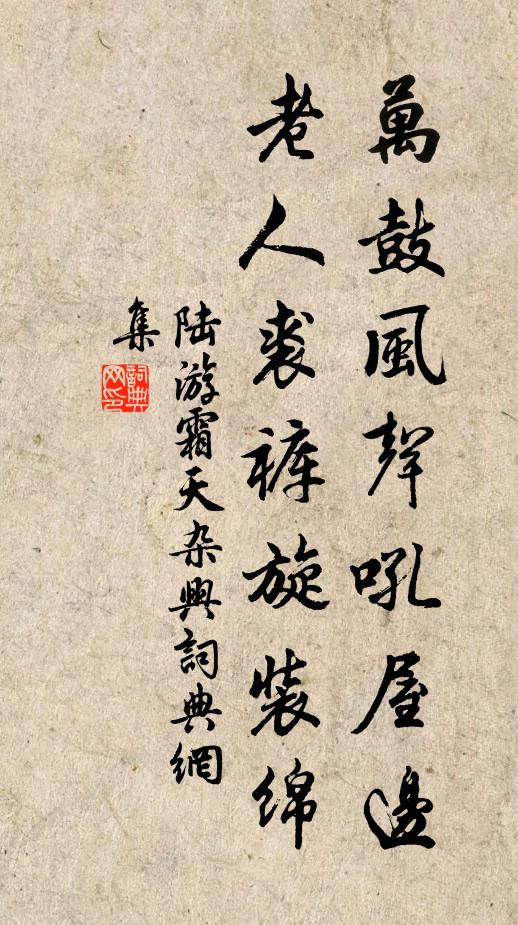 萬鼓風聲吼屋邊
老人裘褲旋裝綿
陆游霜天杂興詞典網
集
詞典網印